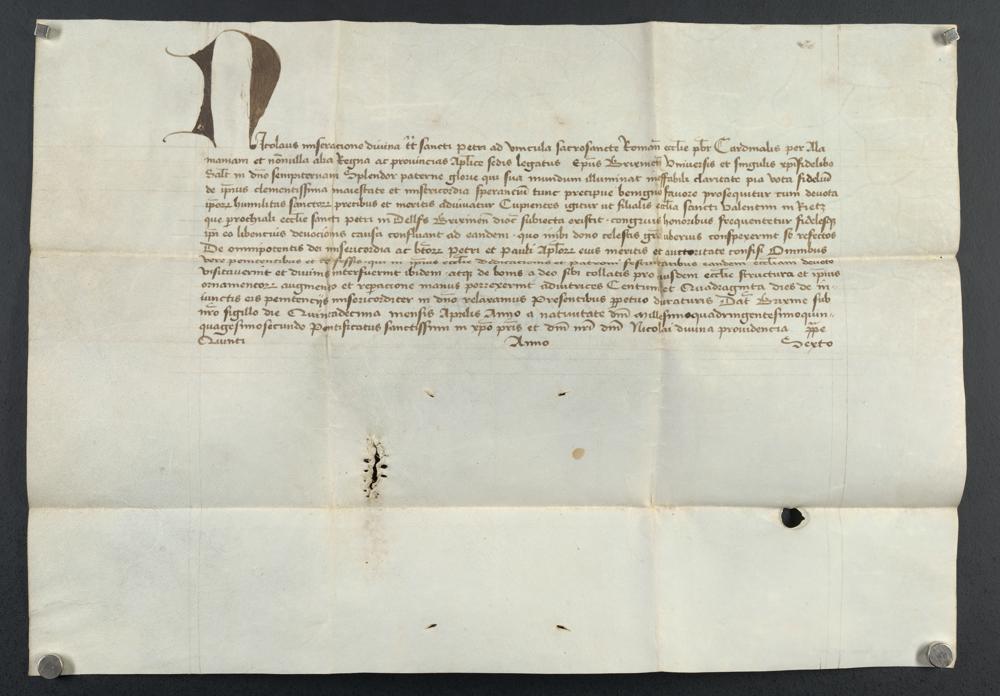 Nicolaus miseracione divina tt̃ sancti Petri ad vincula sacrosancte Romañ ecclie p̃br Cardinalis per Ala
maniam et nonnulla alia Regna ac provincias Aplice sedis legatus Ep̃us Brixineñ Universis et singulis xp̃ifidelibo
Salt̃ in dño sempiternam Splendor paterne glorie qui sua mundum illuminat ineffabili claritate pia vota fidelium
de ip̃ius clementissima maiestate et misericordia sperancium tunc precipue benigno favore prosequitur cum devota
ip̃orꝝ humilitas sanctorꝝ precibus et meritis adiuvatur Cupientes igitur ut filialis ecclia sancti Valentini in
que prochiali ecclie sancti petri in Brixineñ dioc̃ subiecta existit congruis honoribus frequentetur fidelesqꝫ
ip̃i eo libencius devocionis causa confluant ad eandem quo inibi dono celestis grẽ uberius conspexerint se refectos
De omnipotentis dei misericordia ac btõrꝝ Petri et Pauli Aplorꝝ eius meritis et auctoritate confisi Omnibus
vere penitentibus et confessis qui in ip̃ius ecclie dedicacionis et patroni festivitatibus eandem eccliam devote
visitaverint et divinis interfuerint ibidem atqꝫ de bonis a deo sibi collatis pro eiusdem ecclie structura et ip̃ius
ornamentorꝝ augmento et reparacione manus porrexerint adiutrices Centum et Quadraginta dies de in
iunctis eis penitencijs misericorditer in dño relaxamus Presentibus ꝑpetuo duraturis Dat̃ Brixine sub
nr̃o sigillo die Quintadecima mensis Aprilis Anno a nativitate dñi Millesimoquadringentesimoquin-
quagesimosecundo Pontificatus sanctissimi in xp̃o pr̃is et dñi nr̃i dñi Nicolai divina providencia p̃pe
Quinti Anno Sexto